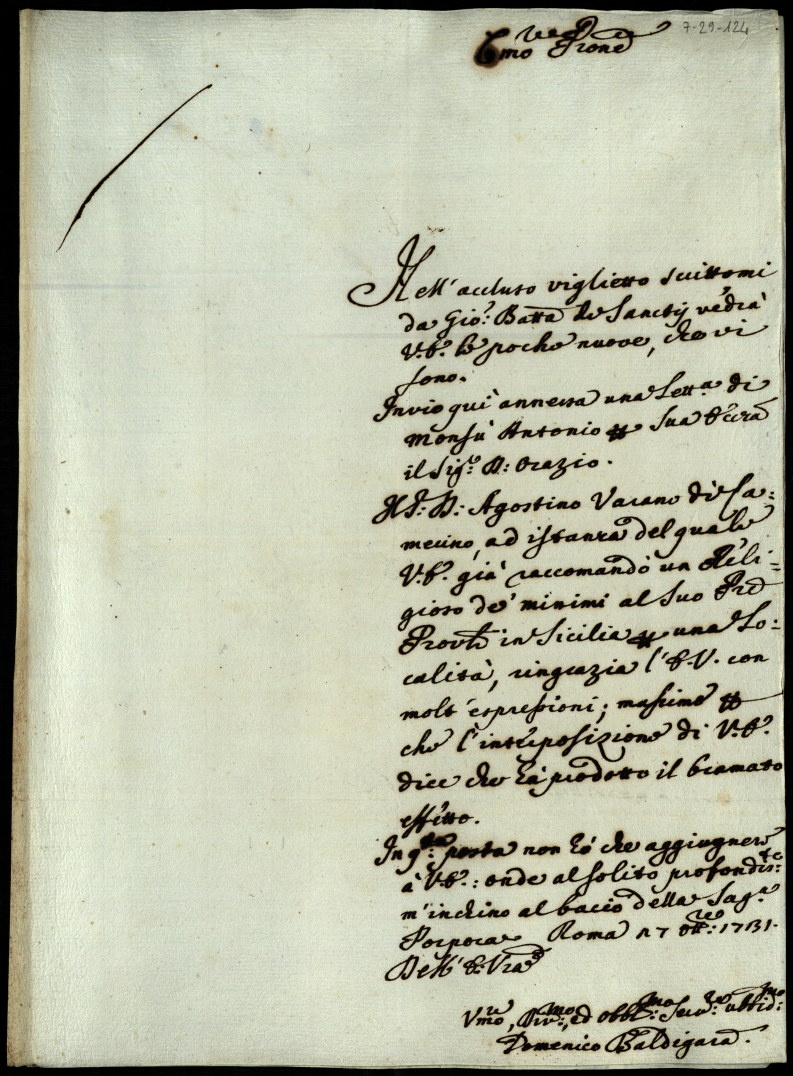 7-29-124
E.mo e Rev.mo Prone
Nell' accluso viglietto scrittomi
da Gio: Batta de Sanctij vedrà
V.E. le poche nuove, che vi
sono.
Invio qui annessa una Lett.a di
Monsù Antonio per Sua Ecc.za
il Sig.r D: Orazio.
Il S.r D: Agostino Varano di Ca:
merino, ad istanza del quale
V.E. già raccomandò un Reli:
gioso de' minimi al suo Pre
Prov.le in Sicilia per una Lo:
calità, ringrazia l'E.V. con
molt' espressioni; massime per
che l'interposizione di V.E.
dice che hà prodotto il bramato
effetto.
In q.ta posta non hò che aggiugnere
à V.E.: onde al solito profondis.te
m'inchino al bacio della Sag.a
Porpora. Roma 7 8bre: 1731.
Dell' E. Vra
Vmo, Div.mo, ed obb.mo Serv.re ubbid.mo
Domenico Baldigara.